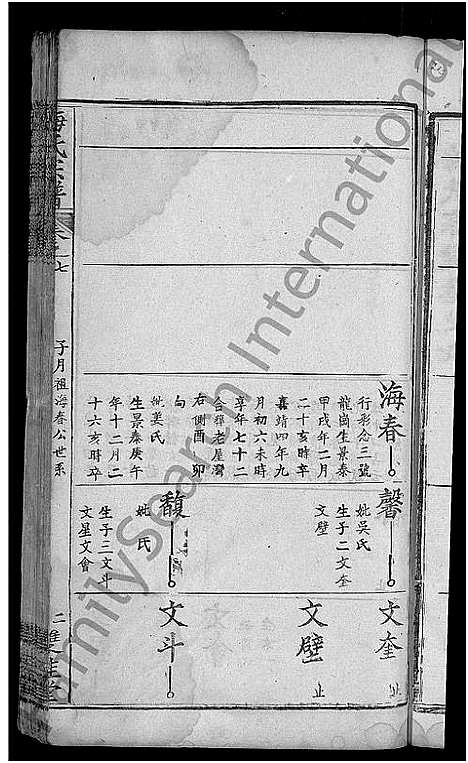 海春
行彩念三號
龍崗生景泰
甲戌年二月
二十亥時卒
嘉靖四年九
月初六未時
享年七十二
合獐老屋灣
右側酉卯
向
妣姜氏
生景泰庚午
年十二月二
十六亥時卒
馨
妣吳氏
生子二文奎
文壁
馥
妣 氏
生子三文斗
文星文會
文奎
止
文壁
止
文斗
氏宗譜
卷之七
子月祖海春公世系
二
FamilySearch International